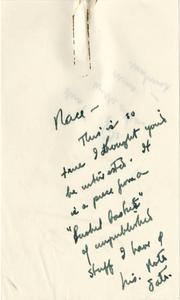 Mace —
This is so
true I thought you'd
be interested. It
is a piece from a
"Bushel Basket"
of unpublished
stuff I have of
his. Note
date.